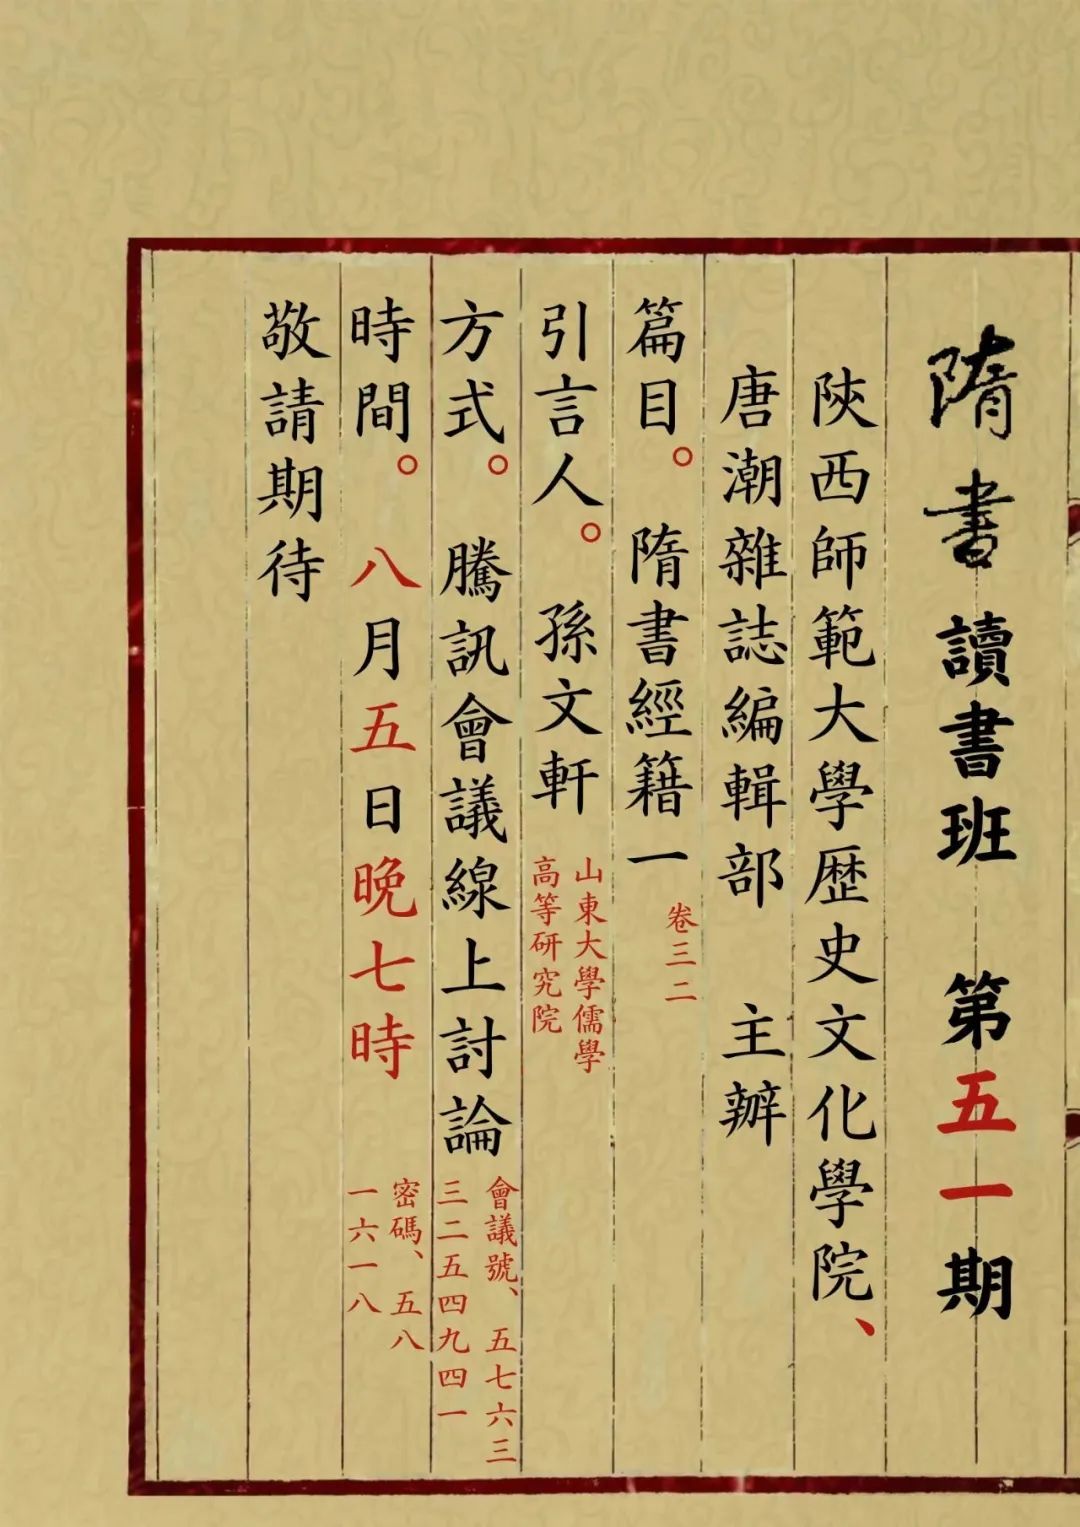 隋書讀書班　第五一期
陝西師範大學歷史文化學院、
唐潮雜誌編輯部　主辦
篇目。　隋書經籍一　卷三二
引言人。　孫文軒
山東大學儒學
高等研究院
方式。　騰訊會議線上討論
會議號、五七六三
三二五四九四一
密碼、五八
一六一八
時間。　八月五日晚七時
敬請期待